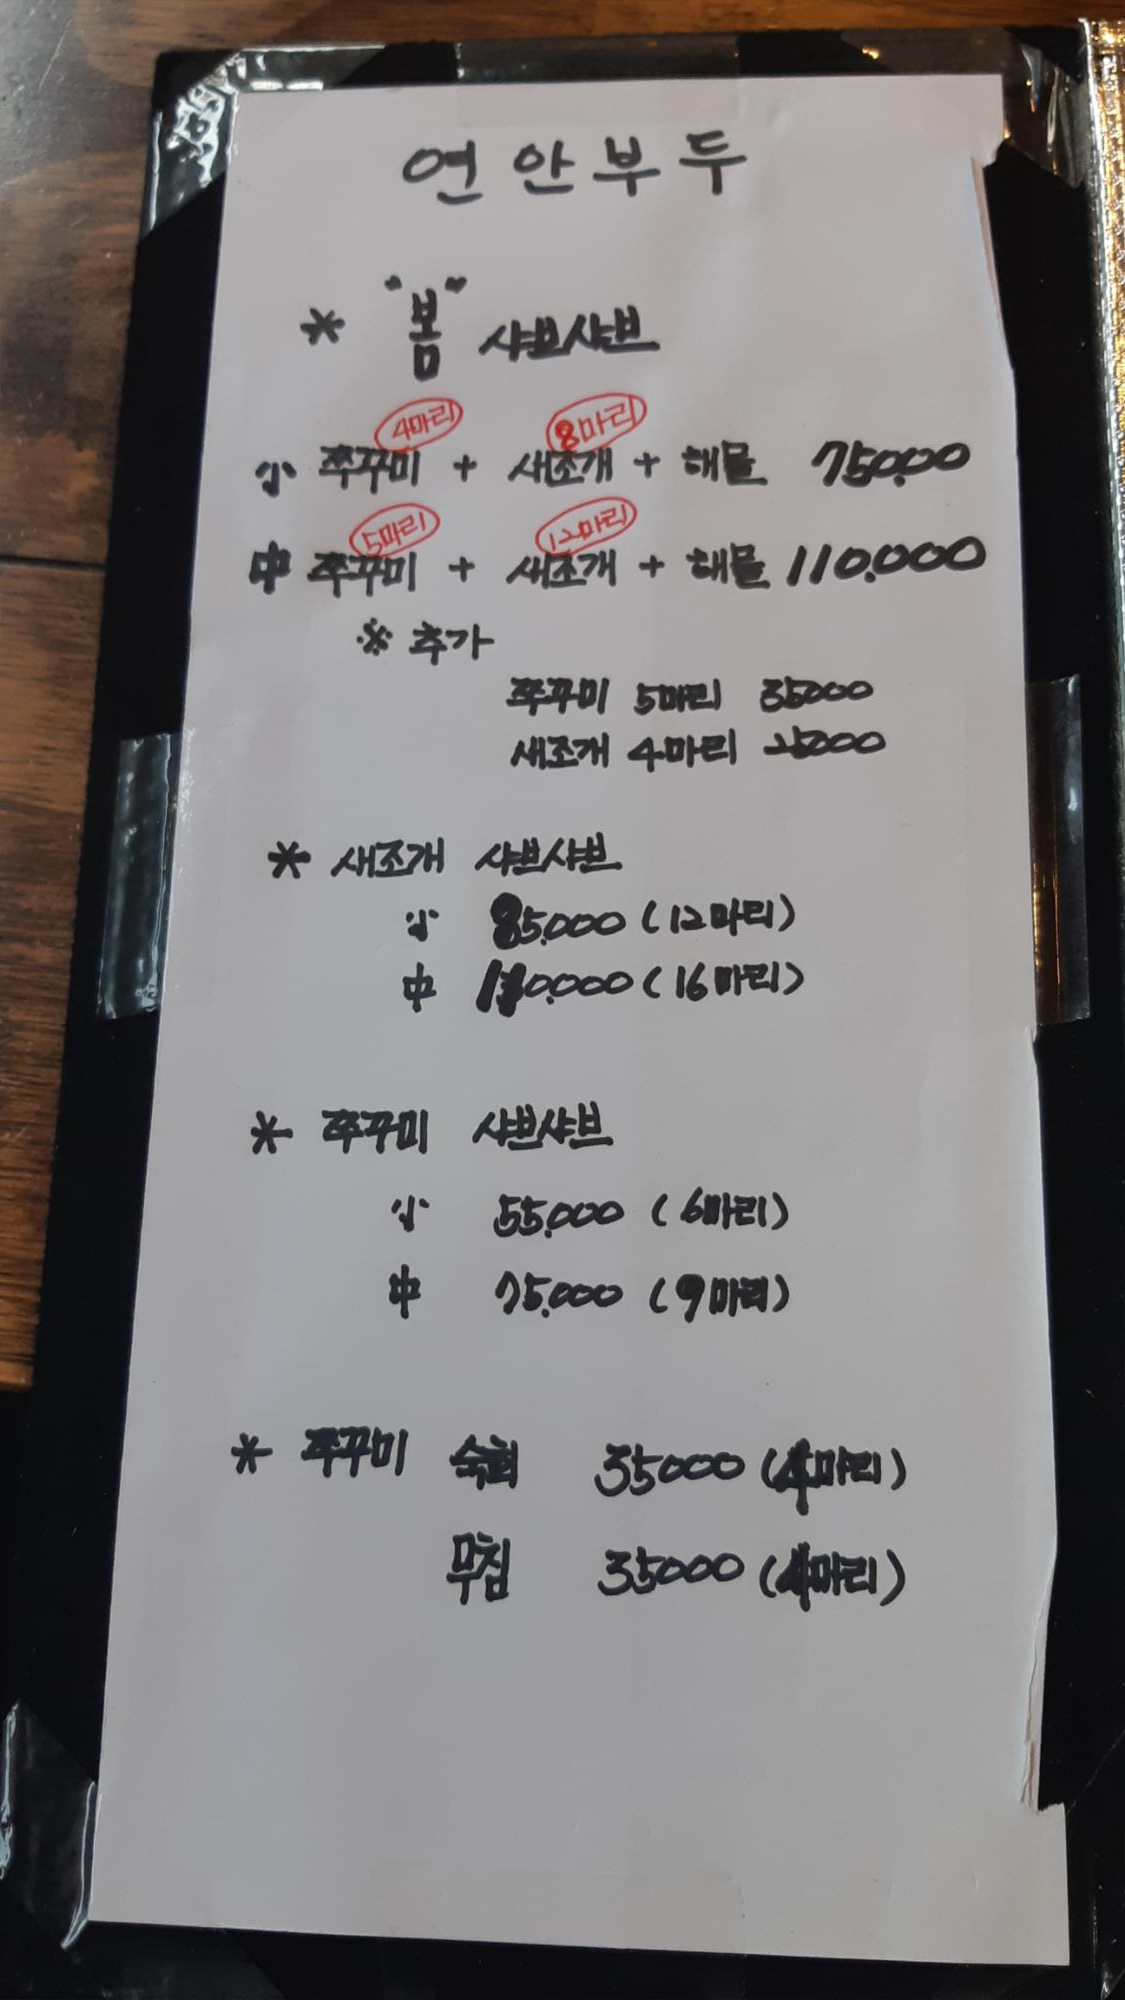 연안부두
* "봄" 샤브샤브
4마리 8마리
小 쭈꾸미 + 새조개 + 해물 75000
5마리 12마리
中 쭈꾸미 + 새조개 + 해물 110.000
※ 추가
쭈꾸미 5마리 35000
새조개 4마리 25000
* 새조개 샤브샤브
小 85.000 (12마리)
中 110.000 (16마리)
* 쭈꾸미 샤브샤브
小 55.000 (6마리)
中 75.000 (9마리)
* 쭈꾸미 숙회 35000 (4마리)
무침 35000 (4마리)